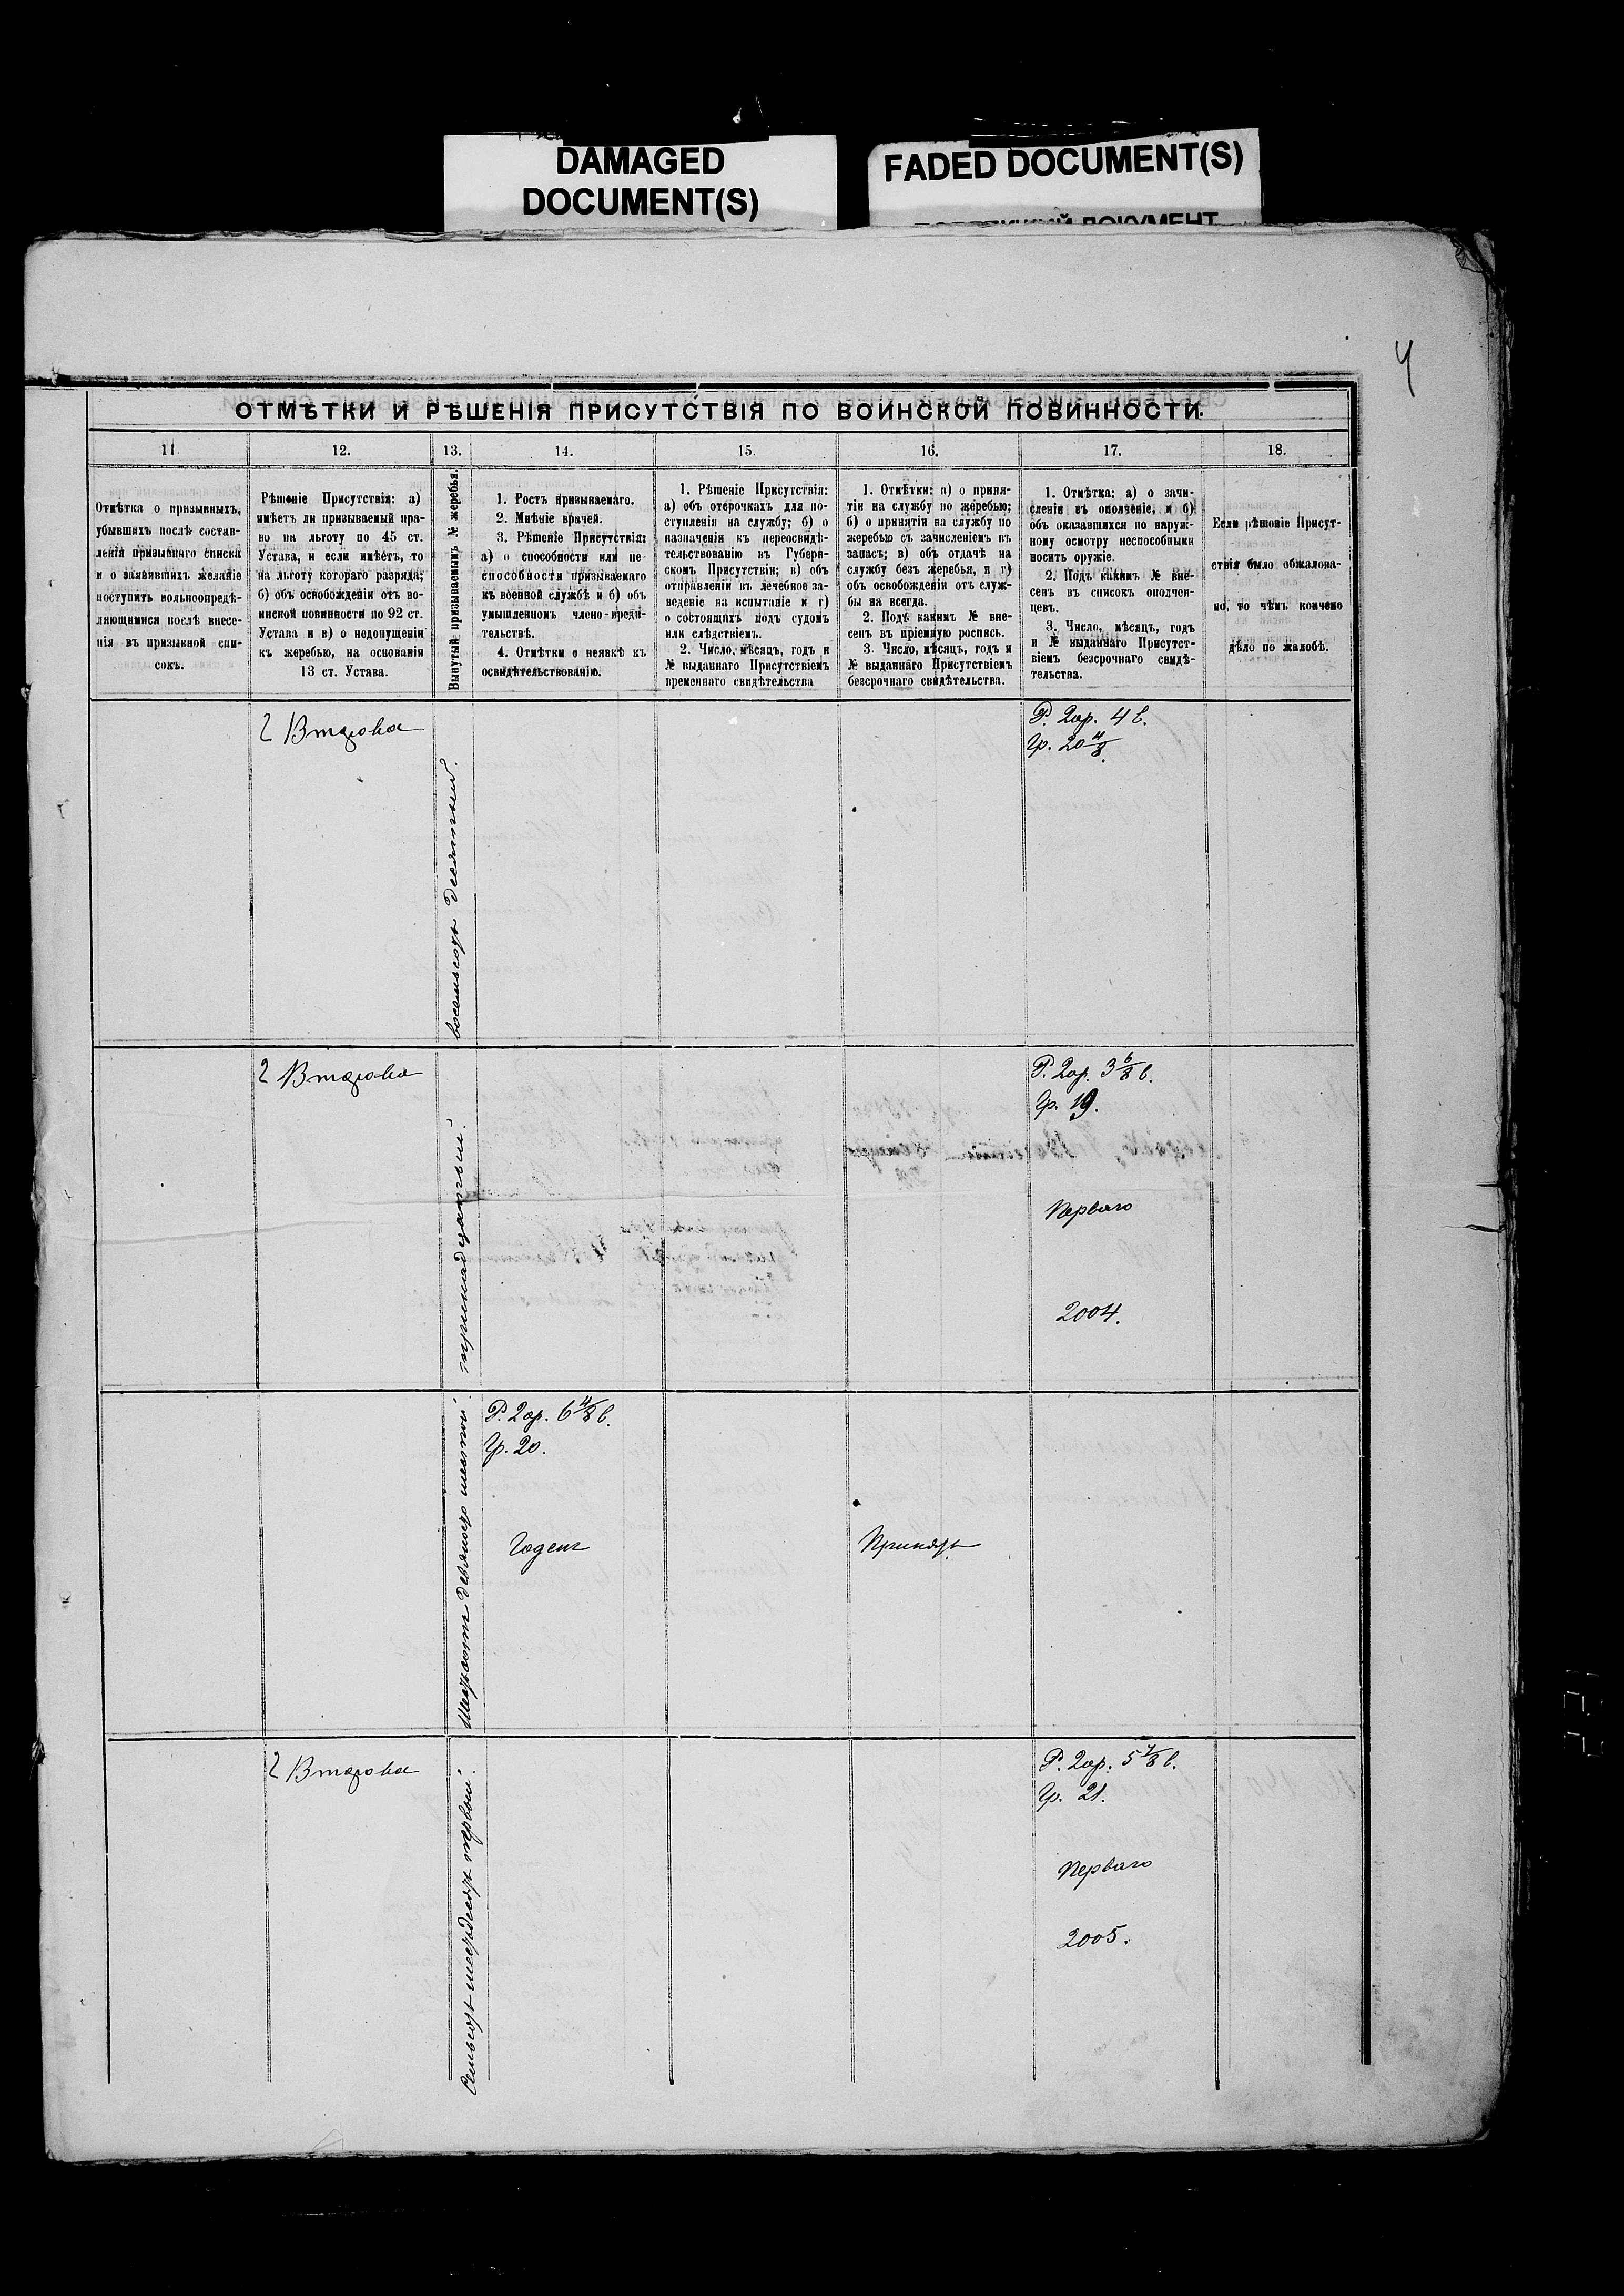 DAMAGED
DOCUMENT(S)
FADED DOCUMENT(S)
ДОКУМЕНТ
4
ОТМѢТКИ И РѢШЕНІЯ ПРИСУТСТВІЯ ПО ВОИНСКОЙ ПОВИННОСТИ.
11.
12.
13.
14.
15.
16.
17.
18.
Отмѣтка о призывныхъ,
убывшихъ послѣ состав-
ленія призывнаго списка
и о заявившихъ желаніе
поступить вольноопредѣ-
ляющимися послѣ внесе-
нія въ призывной спи-
сокъ.
Рѣшеніе Присутствія: а)
имѣетъ ли призываемый пра-
во на льготу по 45 ст.
Устава, и если имѣетъ, то
на льготу котораго разряда;
б) объ освобожденіи отъ во-
инской повинности по 92 ст.
Устава и в) о недопущеніи
къ жеребью, на основаніи
13 ст. Устава.
Вынутый призываемымъ № жеребья.
1. Ростъ призываемаго.
2. Мнѣніе врачей.
3. Рѣшеніе Присутствія:
а) о способности или не-
способности призываемаго
къ военной службѣ и б) объ
умышленномъ члено-вреди-
тельствѣ.
4. Отмѣтки о неявкѣ къ
освидѣтельствованію.
1. Рѣшеніе Присутствія:
а) объ отсрочкахъ для по-
ступленія на службу; б) о
назначеніи къ переосвидѣ-
тельствованію въ Губерн-
скомъ Присутствіи; в) объ
отправленіи въ лечебное за-
веденіе на испытаніе и г)
о состоящихъ подъ судомъ
или слѣдствіемъ.
2. Число, мѣсяцъ, годъ и
№ выданнаго Присутствіемъ
временнаго свидѣтельства
1. Отмѣтки: а) о приня-
тіи на службу по жеребью;
б) о принятіи на службу по
жеребью съ зачисленіемъ въ
запасъ; в) объ отдачѣ на
службу безъ жеребья, и г)
объ освобожденіи отъ служ-
бы на всегда.
2. Подъ какимъ № вне-
сенъ въ пріемную роспись.
3. Число, мѣсяцъ, годъ и
№ выданнаго Присутствіемъ
безсрочнаго свидѣтельства.
1. Отмѣтка: а) о зачи-
сленіи въ ополченіе, и б)
объ оказавшихся по наруж-
ному осмотру неспособными
носить оружіе.
2. Подъ какимъ № вне-
сенъ въ списокъ ополчен-
цевъ.
3. Число, мѣсяцъ, годъ
и № выданнаго Присутст-
віемъ безсрочнаго свидѣ-
тельства.
Если рѣшеніе Присут-
ствія было обжалова-
но, то чѣмъ кончено
дѣло по жалобѣ.
2 Втораго
восемьсотъ десятый.
Р. 2ар. 4 в.
Гр. 20 4/8.
2 Втораго
тринадцатый.
Р. 2ар. 3 6/8 в.
Гр. 19.
Перваго
2004.
Шестьсотъ девяносто шестой.
Р. 2ар. 6 4/8 в.
Гр. 20.
Годенъ
Принятъ
2 Втораго
Семьсотъ шестьдесятъ первый.
Р. 2ар. 5 7/8 в.
Гр. 21.
Перваго
2005.